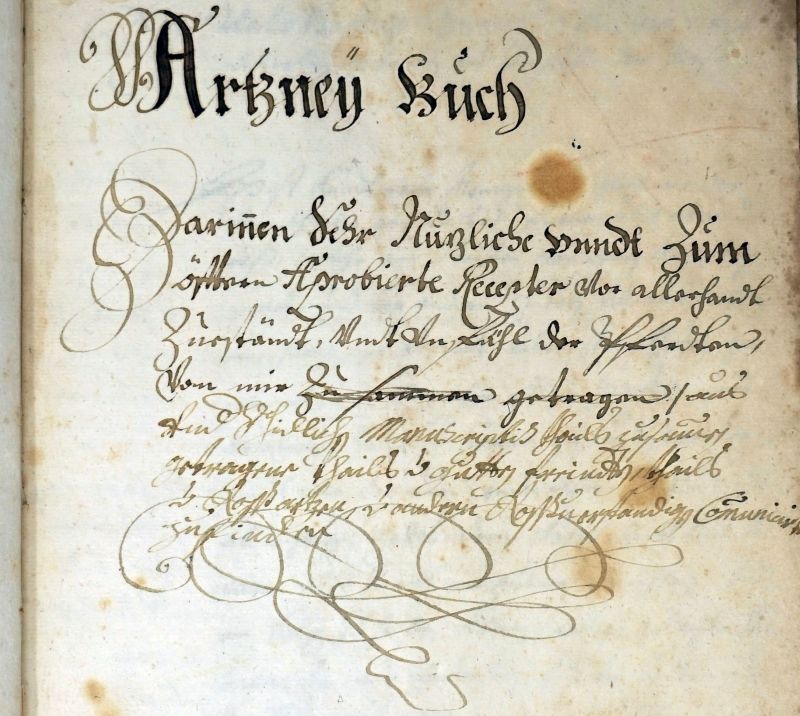 Artzneÿ Buch
Darinnen Sehr Nutzliche vnndt Zum
öfttern Aprobierte Recepter vor allerhandt
Zueständt, Vndt Vn fähl der Pferdten,
Von mir Zusammen getragen / aus
Manuscriptis theils zusammen
getragene theils gutte freindt theils
andern Rossuerständig Communicir
zufinden